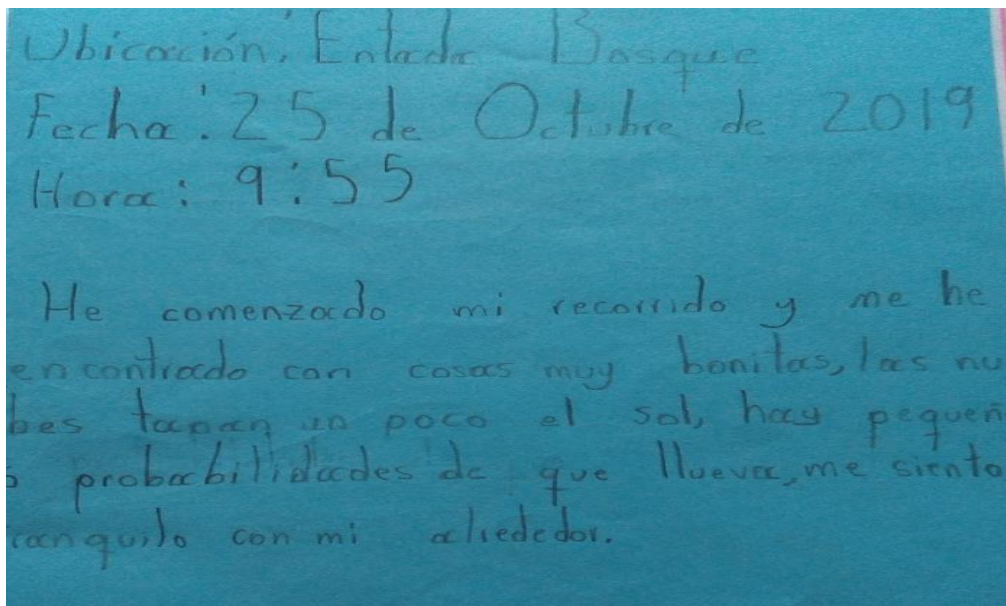 Ubicación: Entada Bosque
Fecha: 25 de Octubre de 2019
Hora: 9:55
He comenzado mi recorrido y me he
encontrado con cosas muy bonitas, las nu
bes tapan un poco el sol, hay pequeñ
s probabilidades de que llueva, me siento
ranquilo con mi aliededor.